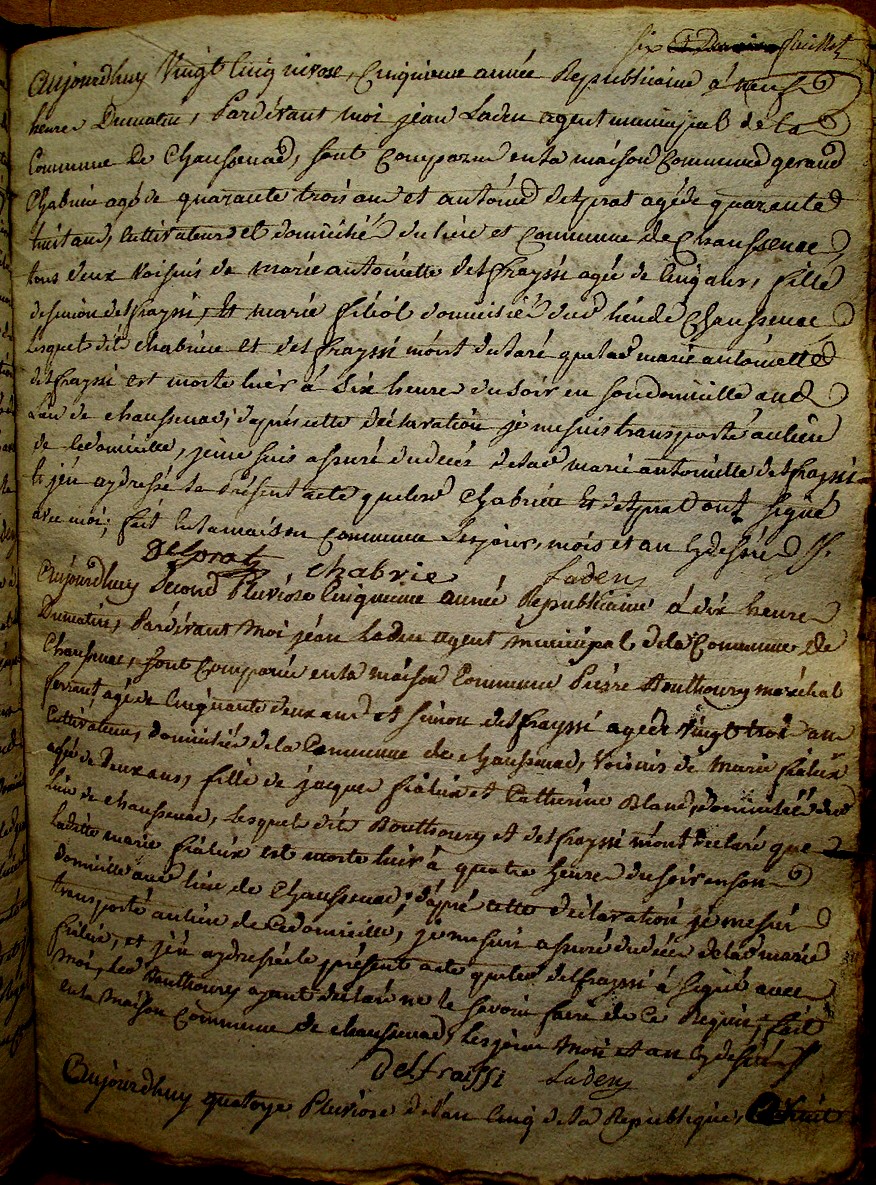 six et Dernier feuillet
Aujourdhuy Vingt Cinq nivose, Cinquieme année Republicaine á neuf
heures Dumatin, Pardevant moi jean Laden agent municipal de la
Commune de Chaussenac, sont Comparus enla maison Commune geraud
Chabrie agé de quarante trois ans et antoine delprat agé de quarante
huit ans, Cultivateurs et domiciliés dulieu et Commune de Chaussenac,
tous deux voisins de marie antoinette delfrayssi agée de Cinq ans, fille
de simon delfrayssi, Et marie filiol domiciliés dud lieu de Chaussenac,
Lesquel dit chabrie et delfrayssi m'ont déclaré que lad marie antoinette
delfrayssi est morte hier á six heure du soir en son domicille aud
Lieu de chaussenac; d'aprés cette déclaration je me suis transporté au lieu
de ce domicille, je me suis assuré du décés de lad marie antoinette delfrayssi
Et j'éu ay dressé le présent acte que lesd Chabrie Et delprat ont signé
avec moi; fait en la maison Commune Les jour, mois et an Cy dessus
Delprat chabrie Laden
Aujourdhuy second Pluviose Cinquieme année Republicaine á dix heure
Dumatin, Pardevant moi jean Laden agent municipal de la Commune de
Chaussenac, sont Comparus enla maison Commune Pierre Bouthoury maréchal
ferrant agé de Cinquante deux ans et simon delfrayssi agé de vingt trois ans
Cultivateur, domiciliés de la Commune de chaussenac, voisins de marie fialeix
agée de Deux ans, fille de jacque fialeix et Catterine Bland, domiciliés dud
lieu de chaussenac, Lesquel dit Bouthoury et delfrayssi m'ont déclaré que
Laditte marie fialeix est morte hier á quatre heures du soir en son
domicille aud lieu de Chaussenac; d'aprés cette déclaration je me suis
transporté au lieu de Ce domicille, je me suis assuré du décés de lad marie
fialeix, et j'éu ay dressé le présent acte que led delfrayssi á signé avec
moi, led Bouthoury ayant déclaré ne le savoir faire de Ce Requis, fait
en la maison Commune de chaussenac, Les jour mois et an Cy dessus
Delfraissi Laden
Aujourdhuy quatorze Pluviose de l'an Cinq de la Republique, huit